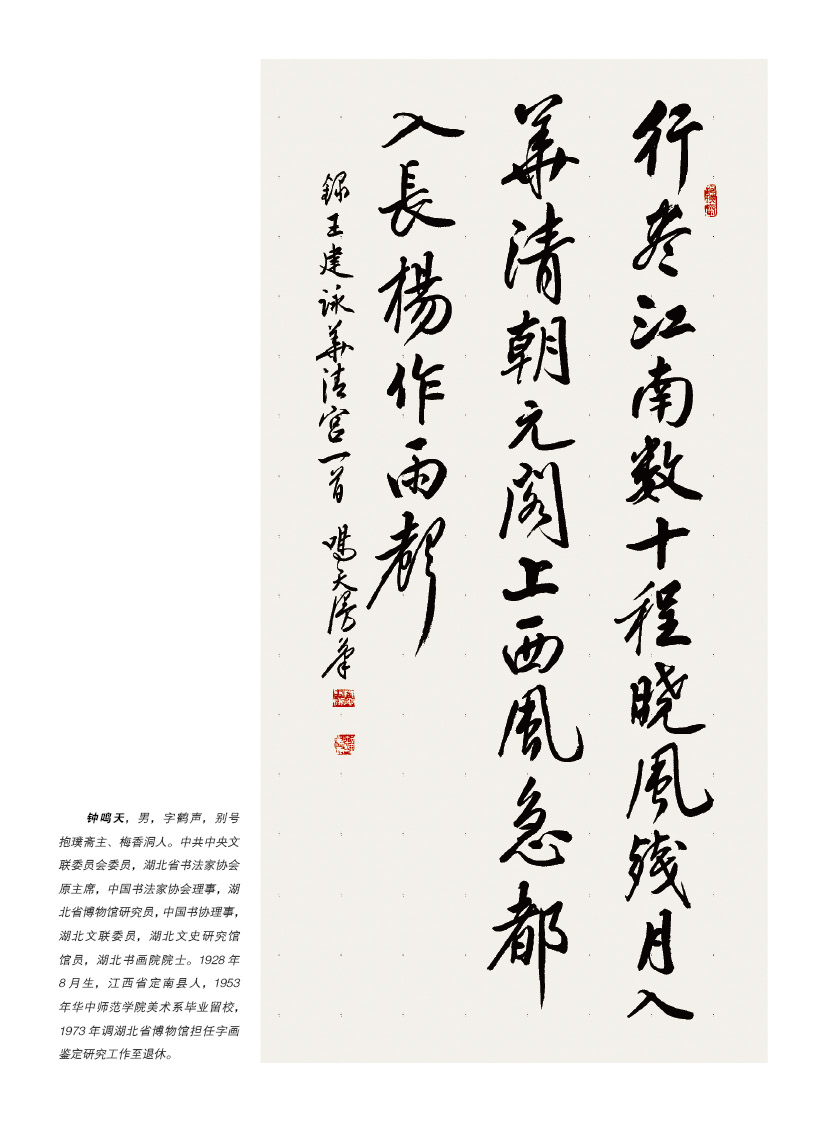 行尽江南数十程晓风残月入
華清朝元阁上西風急都
入長楊作雨聲
録王建詠華清宫一首 鳴天漫筆
钟鸣天，男，字鹤声，别号
抱璞斋主、梅香洞人。中共中央文
联委员会委员，湖北省书法家协会
原主席，中国书法家协会理事，湖
北省博物馆研究员，中国书协理事，
湖北文联委员，湖北文史研究馆
馆员，湖北书画院院士。1928 年
8 月生，江西省定南县人，1953
年华中师范学院美术系毕业留校，
1973 年调湖北省博物馆担任字画
鉴定研究工作至退休。